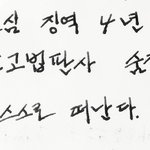 심 징역 4년
고법판사
스스로 떠난다.